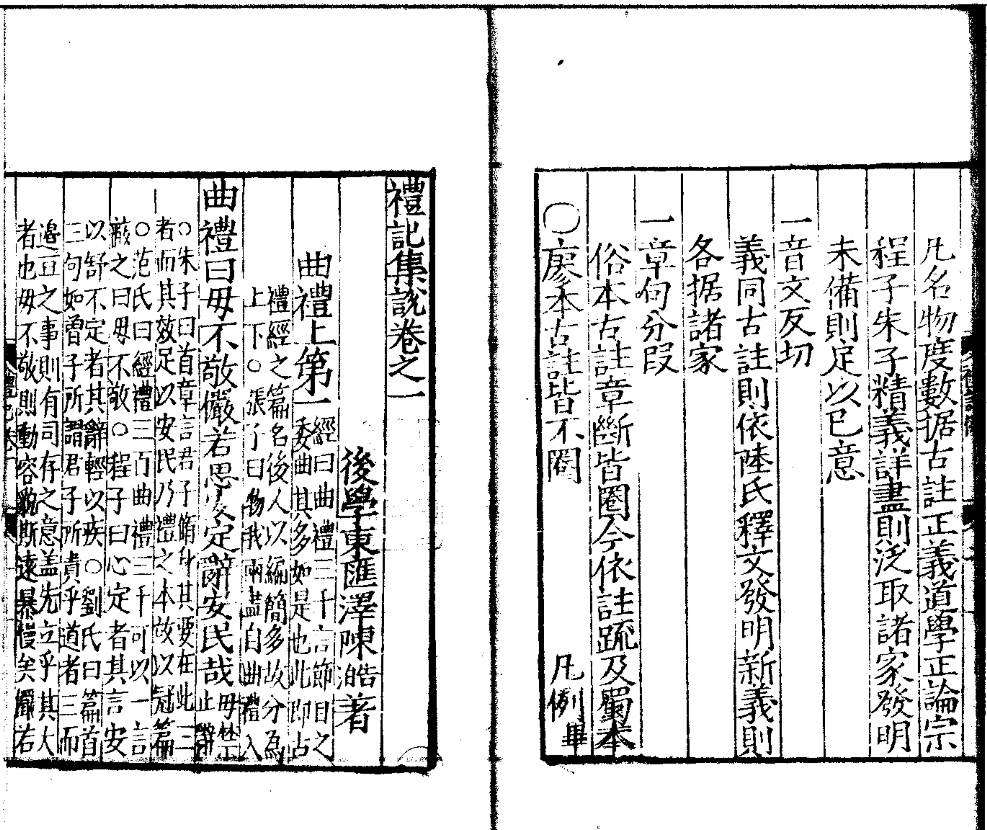 凡名物度數据古註正義道學正論宗
程子朱子精義詳盡則泛取諸家發明
未備則足以已意
一音文反切
義同古註則依陸氏釋文發明新義則
各据諸家
一章句分段
俗本古註章斷皆圈今依註疏及蜀本
○廖本古註皆不圈
凡例畢
禮記集說卷之一
後學東匯澤陳澔著
曲禮上第一
經曰曲禮三千言節目之
委曲其多如是也此即古
禮經之篇名後人以編簡多故分為
上下○張子曰物我兩盡自曲禮入
曲禮曰毋不敬儼若思安定辭安民哉
毋禁
止辭
○朱子曰首章言君子脩身其要在此三
者而其效足以安民乃禮之本故以冠篇
○范氏曰經禮三百曲禮三千可以一言
蔽之曰毋不敬○程子曰心定者其言安
以舒不定者其辭輕以疾○劉氏曰篇首
三句如曾子所謂君子所貴乎道者三而
籩豆之事則有司存之意盖先立乎其大
者也毋不敬則動容貌斯遠暴慢矣儼若